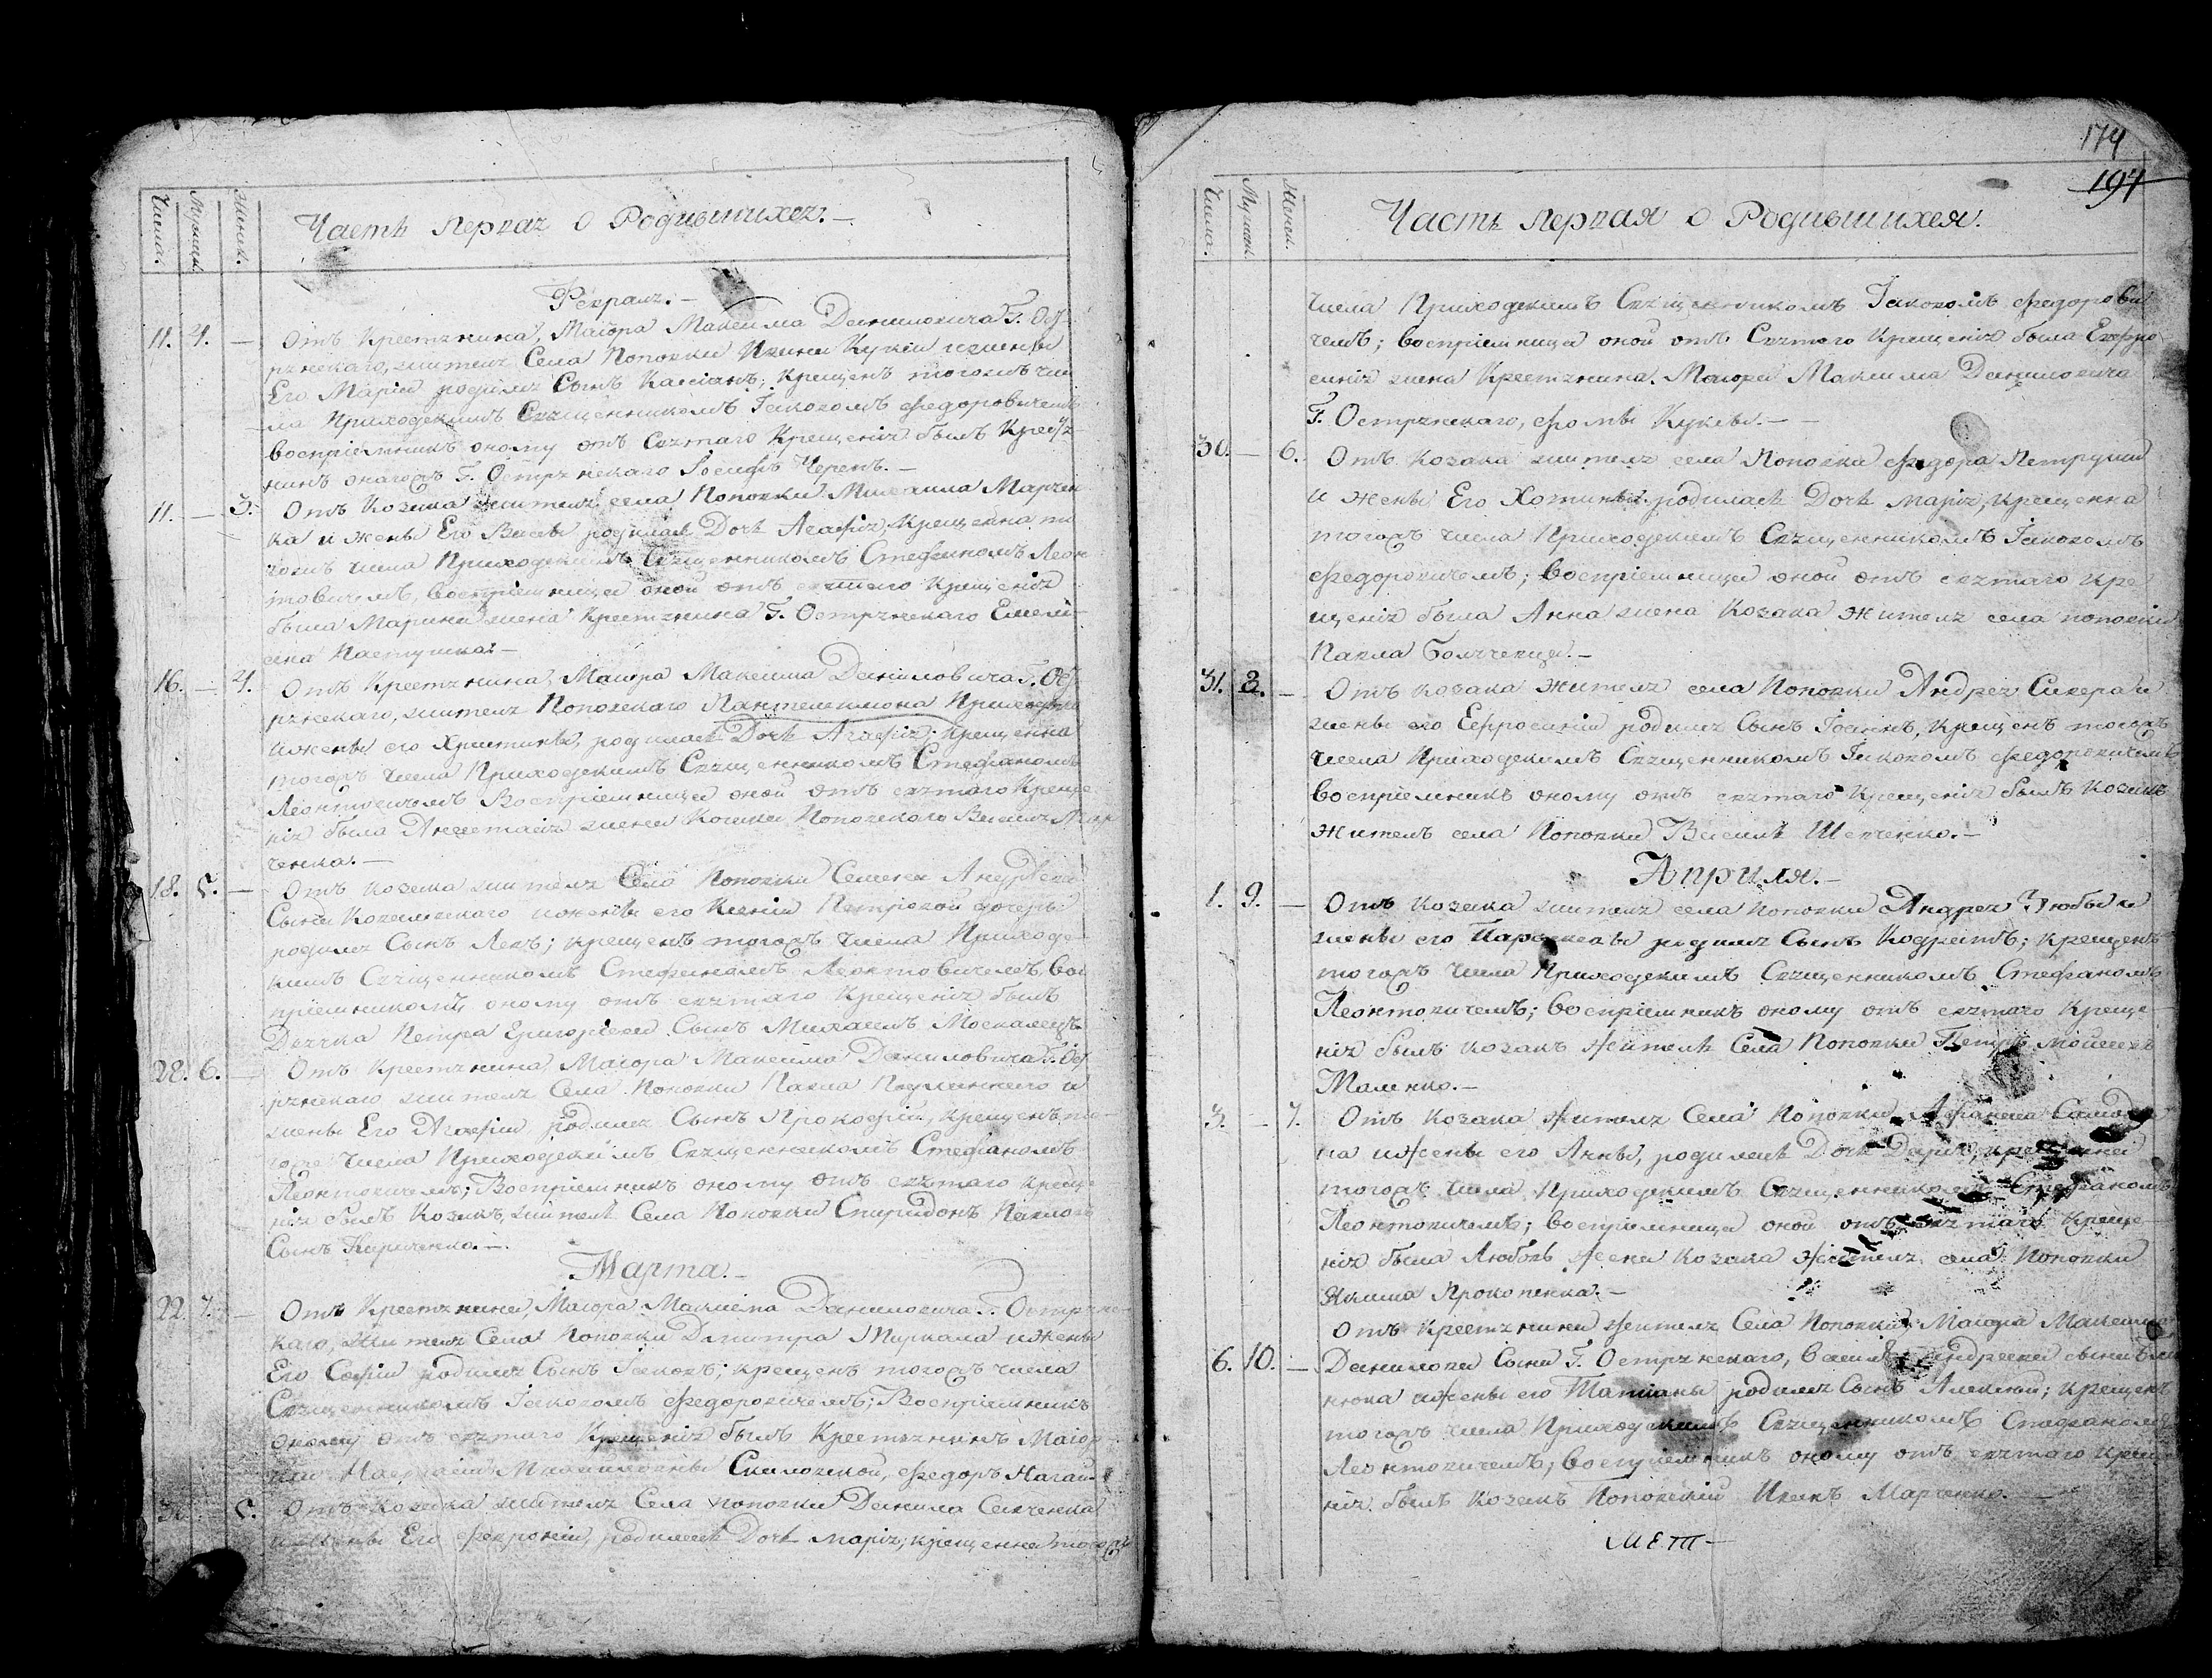 Числа.
Мужеск.
Женск.
Часть первая о Родившихся.
Февраля.
11. 4. — Отъ Крестянина, Маіора Максима Даниловича Г. Ост
рянскаго, жителя Села Поповки Ивана Кукси и жены
Его Маріи родился Сынъ Касіанъ; крещенъ тогожъ чис
ла Приходскимъ Священникомъ Іаковомъ Федоровичемъ
воспріемникъ оному отъ Святаго Крещенія былъ Кресtя
нинъ онагожъ Г. Острянскаго Іосифъ Черепъ.—
11. — 3. Отъ Козака жителя села Поповки Михаила Марчен
ка и жены Его Вассы родилась Дочь Агафія, Крещенна то
гожъ числа Приходскимъ Священникомъ Стефаномъ Леон
товичемъ, воспріемница оной отъ святаго крещенія
была Марина жена Крестянина Г. Острянскаго Емели
ана Пастушка.—
16. — 4. Отъ Крестянина, Маіора Максима Даниловича Г. Ост
рянскаго, жителя Поповскаго Пантелимона Приходка
и жены его Христины, родилась Дочь Агафія; Крещенна
тогожъ числа Приходскимъ Священникомъ Стефаномъ
Леонтовичемъ Воспріемница оной отъ святаго Креще
нія была Анастасія жена Козака Поповскаго Василя
ченка.—
18. 5. — Отъ козака жителя Села Поповки Семена Андреева
Сына и жены его Ксеніи Петровой дочеръ
родился Сынъ Левъ; крещенъ тогожъ числа Приходс
кимъ Священникомъ Стефаномъ Леонтовичемъ, вос
пріемникомъ оному отъ святаго Крещенія былъ
Дячка Петра Григоріева Сынъ Михаилъ Москалецъ.
28. 6. — Отъ Крестянина, Маіора Максима Даниловича Г. Ост
рянскаго жителя Села Поповки Павла и
жены Его Агафіи родился Сынъ Прокофій, крещенъ то
гоже числа Приходскимъ Священникомъ Стефаномъ
Леонтовичемъ; Воспріемникъ оному отъ святаго креще
нія былъ Козакъ, житель Села Поповки Спиридонъ Павловъ
Сынъ Кириченко.—
Марта.—
22. 7. — Отъ Крестянина, Маіора Максима Даниловича Г. Острянс
каго, Жителя Села Поповки Дмитра и жены
Его Софіи родился Сынъ Іаковъ; крещенъ тогожъ числа
Священникомъ Іаковомъ Федоровичемъ; Воспріемникъ
оному отъ святаго Крещенія былъ Крестянинъ Маіор
ши Скиловской, Федоръ Нагай.
5. Отъ Козака жителя Села поповки Данила Савченка
и жены Его Февроніи, родилась Дочь Марія; крещенна тогожъ
174
194
Числа.
Мужеск.
Женск.
Часть первая о Родившихся.
числа Приходскимъ Священникомъ Іаковомъ Федорови
чемъ; воспріемница оной отъ Святаго Крещенія была Евфро
синія жена Крестянина Маіора Максима Даниловича
Г. Острянскаго, Фомы Куксы.—
30. — 6. Отъ козака жителя села Поповки Федора Петруши
и жены Его Хотины родилась Дочь марія, крещенна
тогожъ числа Приходскимъ Священникомъ Іаковомъ
Федоровичемъ; воспріемница оной отъ святаго кре
щенія была Анна жена Козака жителя села поповки
Павла
31. 8. — Отъ козака жителя села Поповки Андрея Сикера и
жены его Ефросиніи родился Сынъ Іоаннъ, крещенъ тогожъ
числа Приходскимъ Священникомъ Іаковомъ Федоровичемъ
воспріемникъ оному отъ святаго крещенія былъ козакъ
житель села Поповки Василь Шевченко.—
Априля.—
1. 9. — Отъ козака жителя села поповки Андрея Зюбы и
жены его Параскевы родился Сынъ Кодратъ; крещенъ
тогожъ числа Приходскимъ Священникомъ Стефаномъ
Леонтовичемъ; воспріемникъ оному отъ святаго креще
нія былъ козакъ житель Села Поповки Петръ Мойсеевъ
Маленко.—
3. — 7. Отъ Козака жителя Села Поповки, Афанасія
па и жены его Анны, родилась Дочь Дарія, крещенна
тогожъ числа Приходскимъ Священникомъ Стефаномъ
Леонтовичемъ; воспріемница оной отъ святаго креще
нія была Любовь жена козака жителя села Поповки
Якима Прокопенка.—
Отъ крестянина жителя Села Поповки, Маіора Максима
6. 10. — Данилова Сына Г. Острянскаго, Василя Андреева сына
нюка и жены его Татіаны родился Сынъ Алексій; крещенъ
тогожъ числа Приходскимъ Священникомъ Стефаномъ
Леонтовичемъ; воспріемникъ оному отъ святаго креще
нія былъ козакъ Поповскій Иванъ Марченко.—
мет—